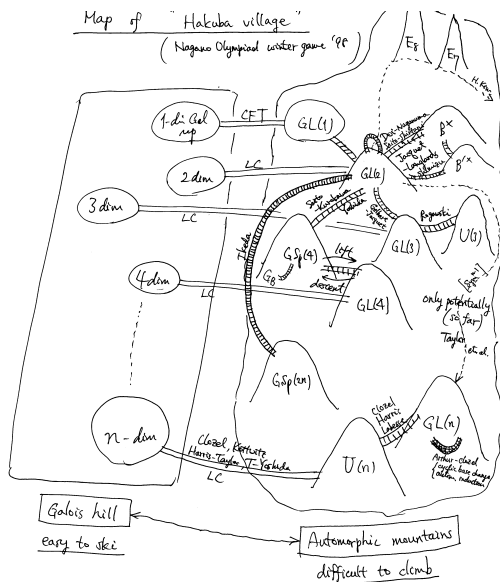 Map of "Hakuba village"
(Nagano Olympiad winter game '98)
E8
E7
H. Kim
1-dim Gal rep
CFT
GL(1)
Doi-Naganuma
Saito-Shintani
B×
Jacquet
-Langlands
-Shimizu
B'×
2 dim
LC
GL(2)
3 dim
LC
Saito
Kurokawa
Yoshida
Gelbart
Jacquet
Rogawski
U(3)
GL(3)
Ikeda
GSp(4)
lift
descent
4 dim
LC
GL(4)
only potentially
(so far)
Taylor
et al.
GSp(2n)
n-dim
Clozel, Kottwitz
Harris-Taylor, T-Yoshida
LC
U(n)
Clozel
Harris
Labesse
GL(n)
Arthur-Clozel
cyclic base change
autom. induction
Galois hill
easy to ski
Automorphic mountains
difficult to climb